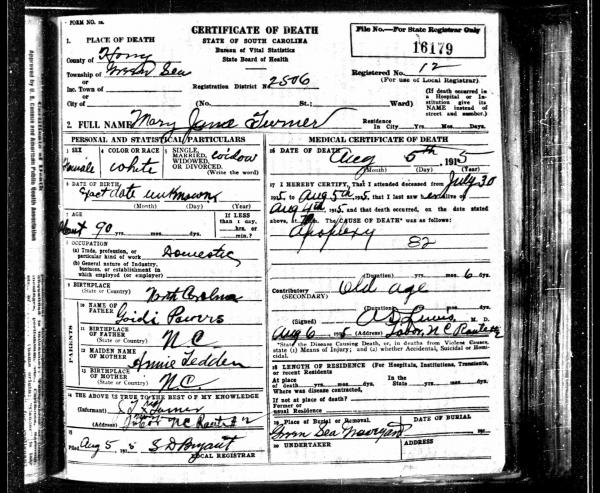 FORM NO. 2a.
CERTIFICATE OF DEATH
STATE OF SOUTH CAROLINA
Bureau of Vital Statistics
State Board of Health
File No.—For State Registrar Only
16179
1. PLACE OF DEATH
County of Horry
Township of Green Sea
or
Inc. Town of
or
City of
Registration District No. 2506
(No. St.; Ward)
Registered No. 12
(For use of Local Registrar)
(If death occurred in a Hospital or Institution give its NAME instead of street and number.)
2. FULL NAME Mary Jane Turner
Residence In City Yrs. Mos. Days.
PERSONAL AND STATISTICAL PARTICULARS
3 SEX
Female
4 COLOR OR RACE
White
5 SINGLE, MARRIED, WIDOWED, OR DIVORCED. widow
(Write the word)
6 DATE OF BIRTH
Exact date unknown
(Month) (Day) (Year)
7 AGE
About 90 yrs. mos. ds.
If LESS than 1 day, hrs. or min.?
8 OCCUPATION
(a) Trade, profession, or particular kind of work Domestic
(b) General nature of Industry, business, or establishment in which employed (or employer)
9 BIRTHPLACE
(State or Country) North Carolina
PARENTS
10 NAME OF FATHER
Powers
11 BIRTHPLACE OF FATHER
(State or Country) NC
12 MAIDEN NAME OF MOTHER Annie
13 BIRTHPLACE OF MOTHER
(State or Country) NC.
14 THE ABOVE IS TRUE TO THE BEST OF MY KNOWLEDGE
(Informant) Turner
(Address) Tabor NC Route # 2
15
Filed Aug 5, 191 5 S D Bryant
LOCAL REGISTRAR
MEDICAL CERTIFICATE OF DEATH
16 DATE OF DEATH
Aug 5th, 1915
(Month) (Day) (Year)
17 I HEREBY CERTIFY, That I attended deceased from July 30
1915, to Aug 5th, 1915, that I last saw her alive on
Aug 4th, 1915, and that death occurred, on the date stated
above, at m. The CAUSE OF DEATH* was as follows:
Apoplexy
82
(Duration) yrs. mos. 6 ds.
Contributory Old age
(SECONDARY)
(Duration) yrs. mos. ds.
(Signed) Lewis M. D.
Aug 6, 1915 (Address) Tabor, NC Route 2
*State the Disease Causing Death, or, in deaths from Violent Causes, state (1) Means of Injury; and (2) whether Accidental, Suicidal or Homicidal.
18 LENGTH OF RESIDENCE (For Hospitals, Institutions, Transients, or recent Residents
At place of death yrs. mos. days. In the State yrs. mos. ds.
Where was disease contracted,
if not at place of death?
Former or usual Residence
19 Place of Burial or Removal.
Green Sea
DATE OF BURIAL
191
20 UNDERTAKER
ADDRESS